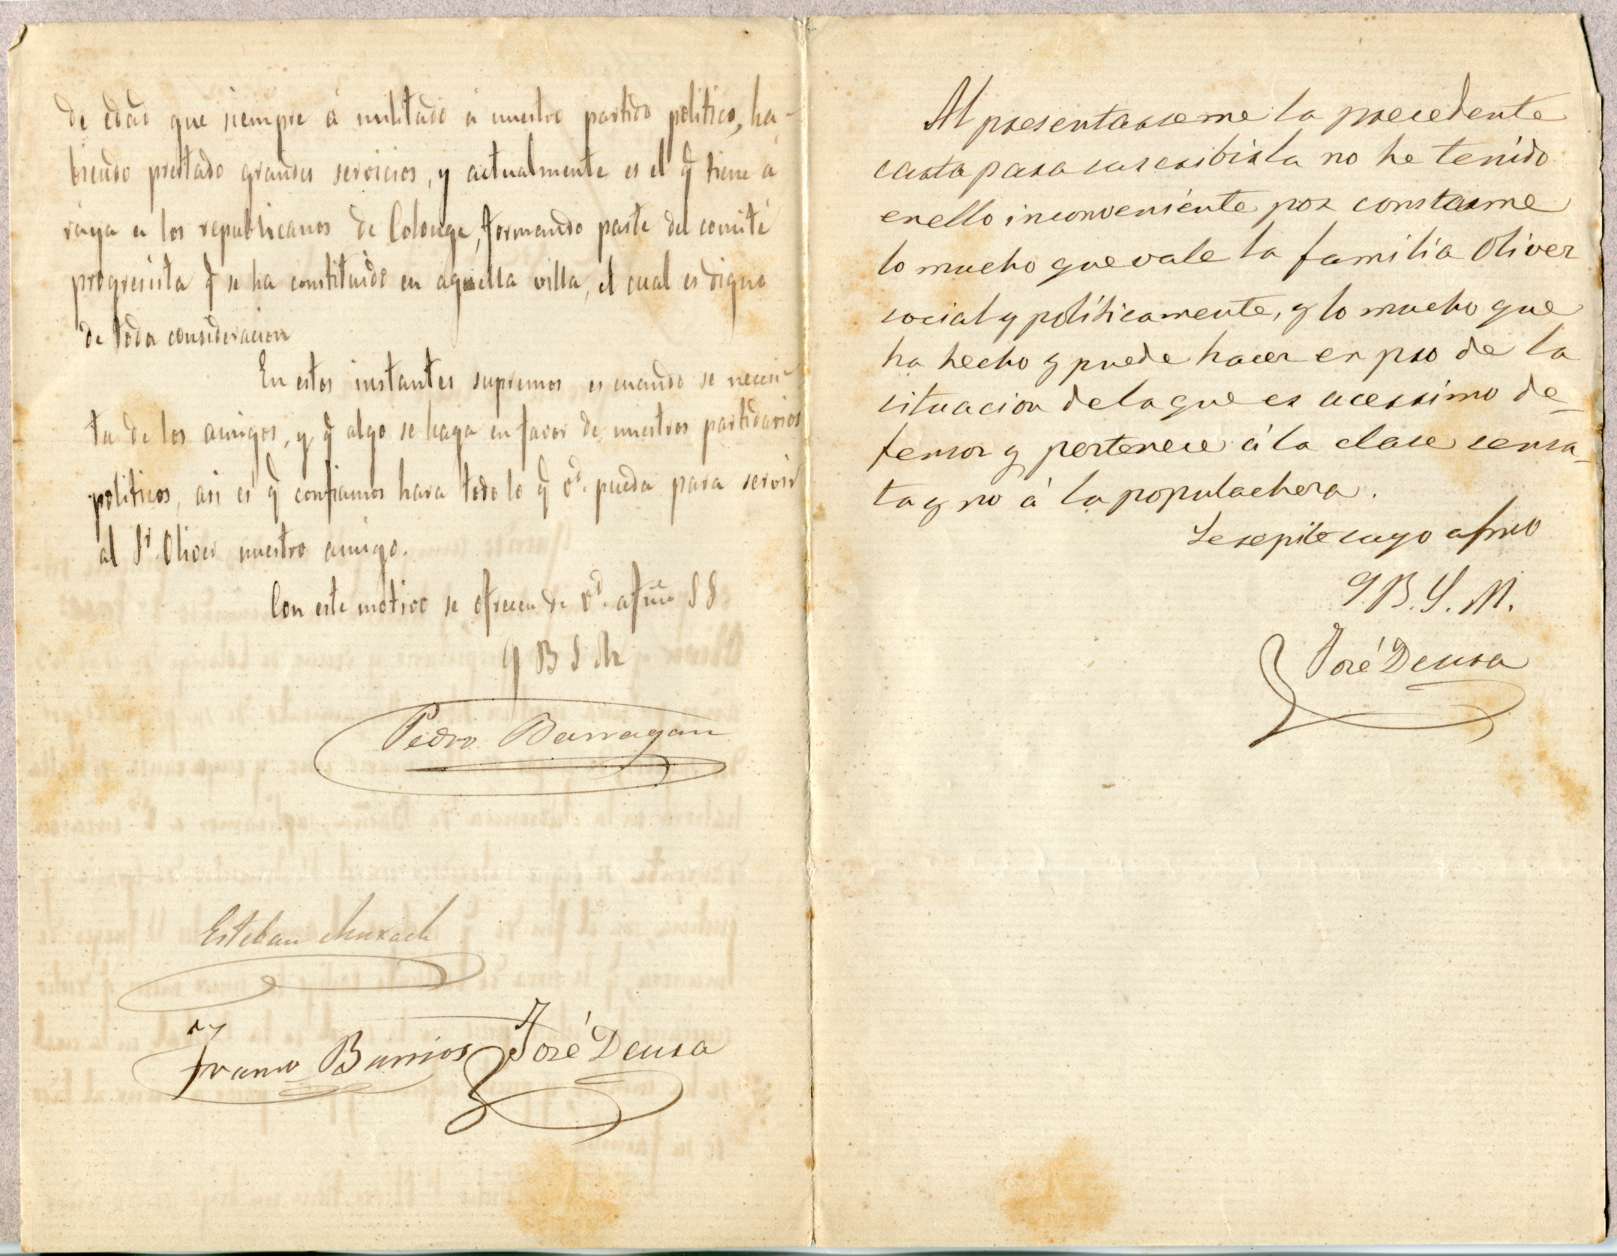 de edad que siempre á militado á nuestro partido politico, ha-
biendo prestado grandes servicios, y actualmente es el q̃ tiene á
raya a los republicanos de Colonge, formando parte del comité
progresista q̃ se ha constituido en aquella villa, el cual es digno
de toda consideracion
En estos instantes supremos es cuando se necesi-
ta de los amigos, y q̃ algo se haga en favor de nuestros partidarios
politicos, asi es q̃ confiamos hara todo lo q̃ Vd. pueda para servir
al Sr. Oliver nuestro amigo.
Con este motivo se ofrecen de Vd. afmo S S
q B S M
Pedro Barragan
Esteban
Franco Barrios
José Deusa
Al presentarseme la precedente
carta para suscribirla no he tenido
en ello inconveniente por constarme
lo mucho que vale la familia Oliver
social y políticamente, y lo mucho que
ha hecho y puede hacer en pro de la
situacion de la que es acerrimo de-
fensor y pertenece á la clase sensa-
ta y no á la populachera.
Se repite suyo afmo
q B. S. M.
José Deusa